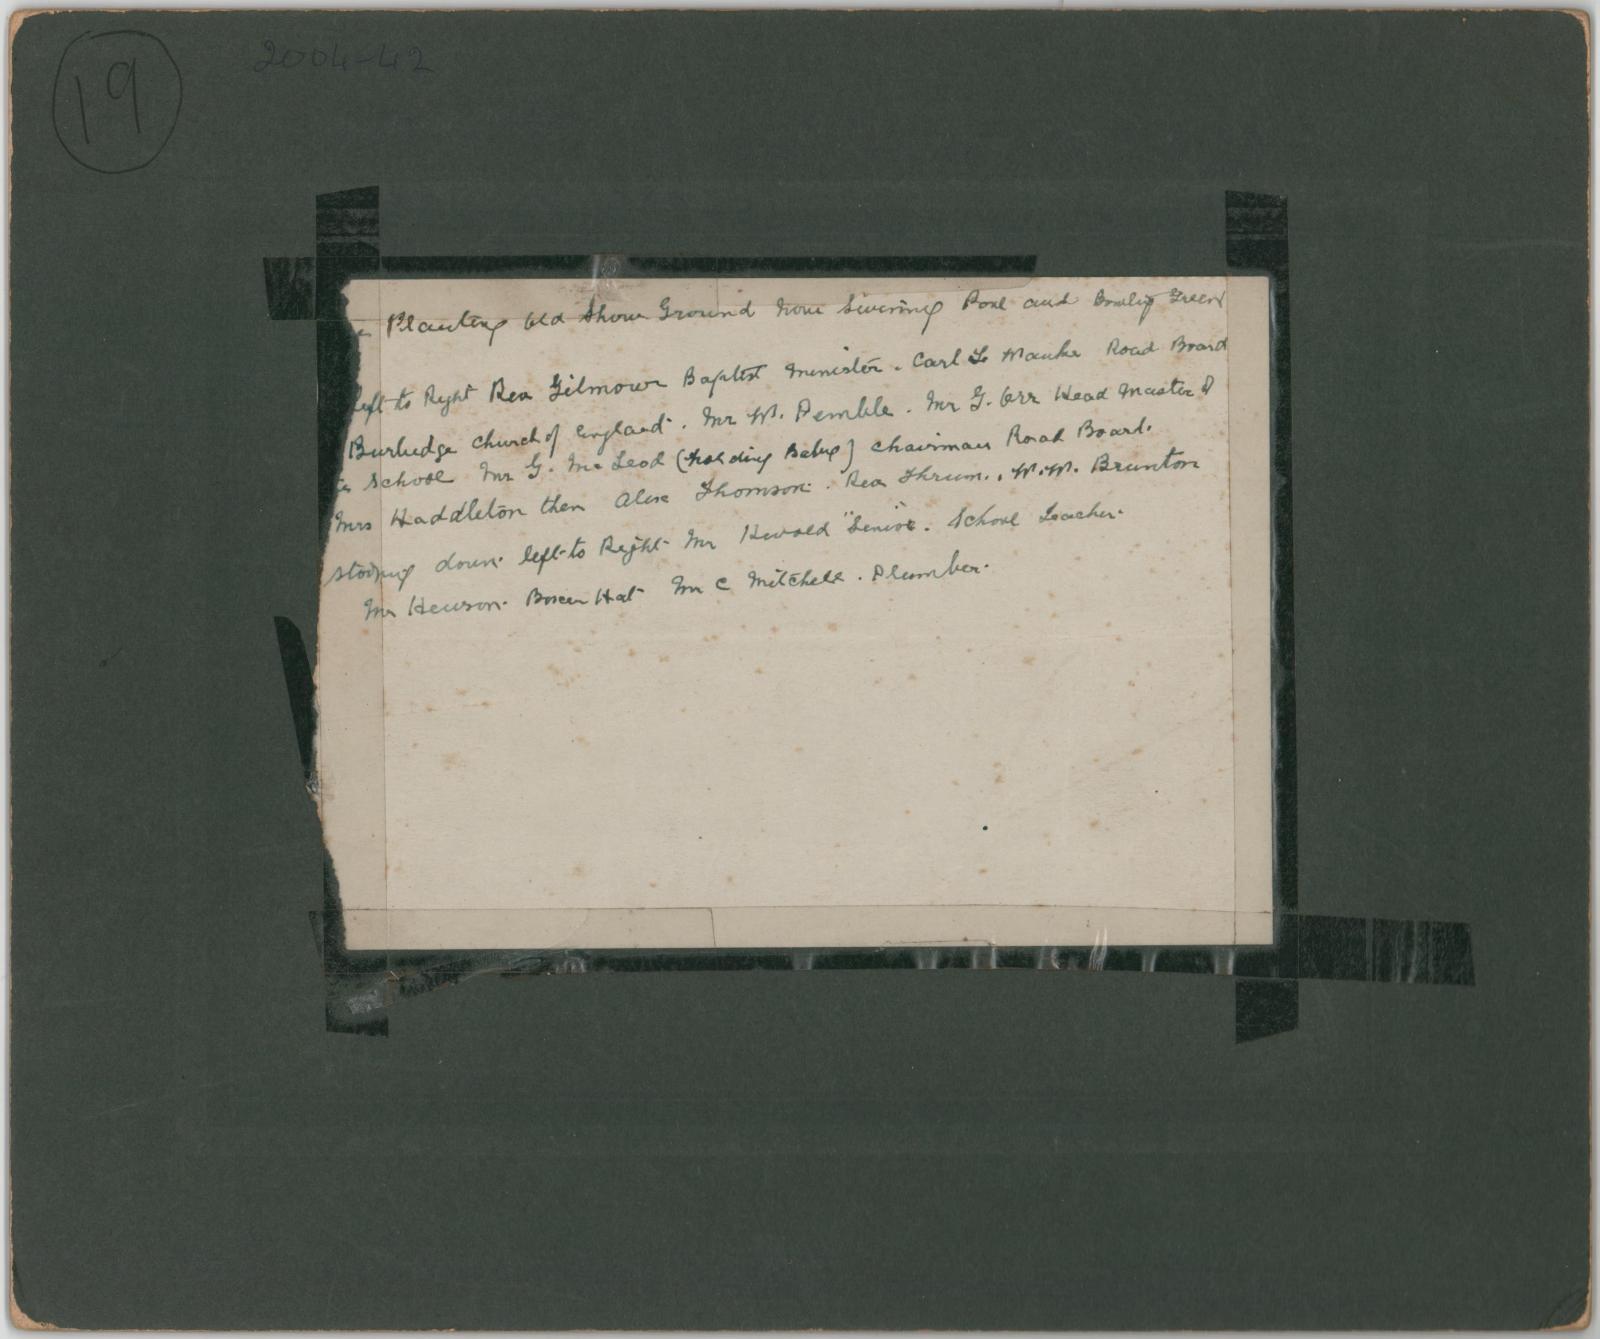 19
2004-42
Planting Old Show Ground now Swiming Pool and Bowling Green
left to Right Rev Gilmour Baptist minister. Carl L Manke Road Board
Burbudge Church of England. Mr W. Pemble. Mr G. Orr Head Master
School Mr G. McLeod (holding Baby) Chairman Road Board.
Mrs Haddleton then Alex Thomson. Rev Thrum., W.W. Brunton
down left to Right Mr "Senior". School Teacher.
Mr Hewson. Boxer Hat Mr C Mitchell. Plumber.